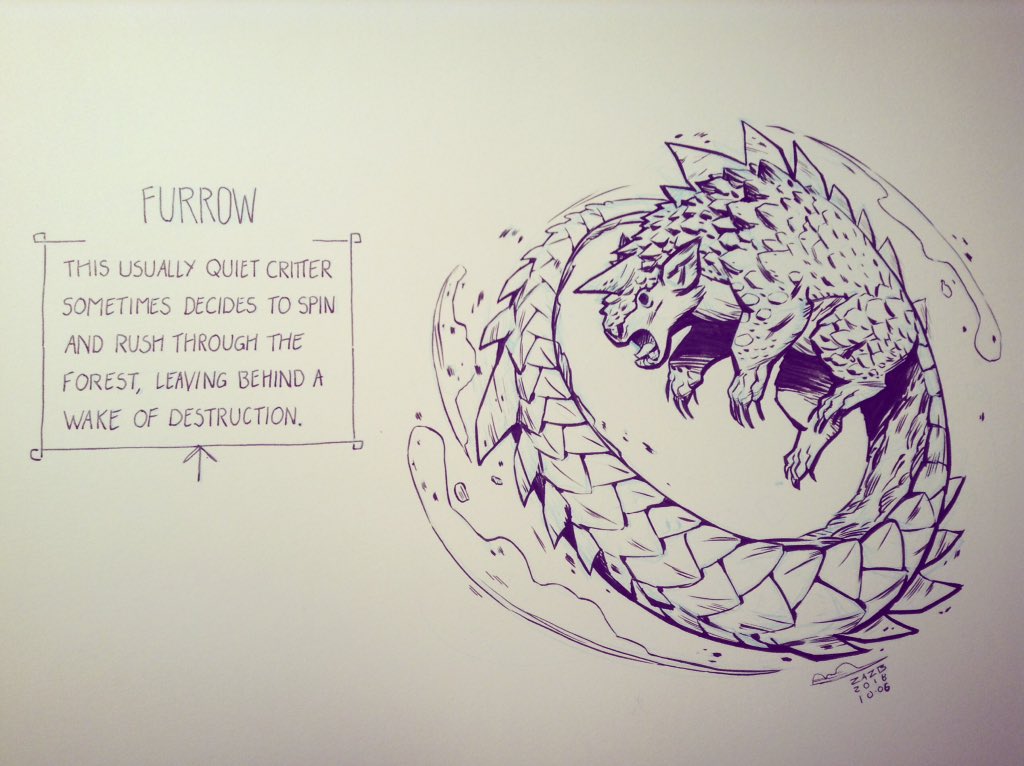 FURROW
THIS USUALLY QUIET CRITTER
SOMETIMES DECIDES TO SPIN
AND RUSH THROUGH THE
FOREST, LEAVING BEHIND A
WAKE OF DESTRUCTION.
ZAZB
2018
10.06